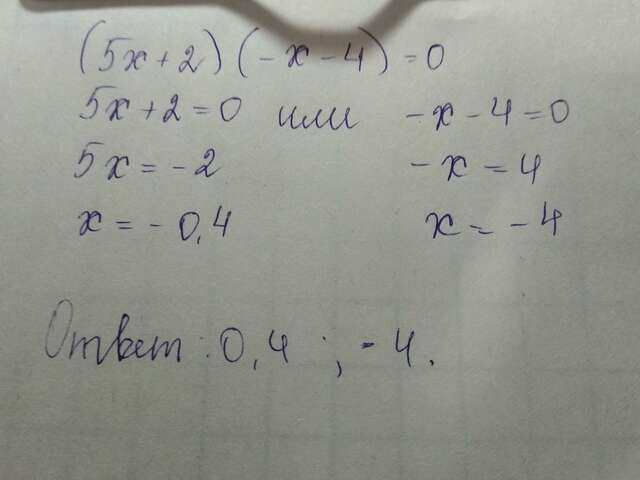 (5x+2)(-x-4)=0
5x+2=0 или -x-4=0
5x=-2 -x=4
x=-0,4 x=-4
Ответ: 0,4; -4.